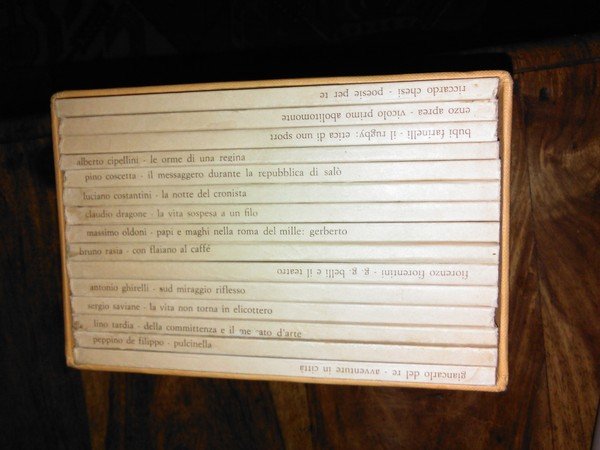 riccardo chesi - poesie per te
enzo aprea - vicolo primo abolitomonte
bubi farinelli - il rugby: etica di uno sport
alberto cipellini - le orme di una regina
pino coscetta - il messaggero durante la repubblica di salò
luciano costantini - la notte del cronista
claudio dragone - la vita sospesa a un filo
massimo oldoni - papi e maghi nella roma del mille: gerberto
bruno rasia - con flaiano al caffé
fiorenzo fiorentini - g. g. belli e il teatro
antonio ghirelli - sud miraggio riflesso
sergio saviane - la vita non torna in elicottero
lino tardia - della committenza e il d'arte
peppino de filippo - pulcinella
giancarlo del re - avventure in città